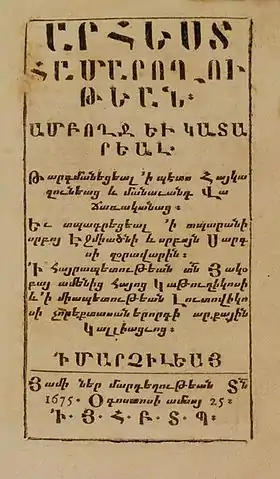 ԱՐՀԵՍՏ
ՀԱՄԱՐՈՂՈՒ
ԹԵԱՆ·
ԱՄԲՈՂՋ ԵՒ ԿԱՏԱ
ՐԵԱԼ·
Թարգմանեցեալ ՚ի պետս Հայկա
զունեաց և մանաւանդ Վա
ճառականաց։
Եւ տպագրեցեալ ՚ի տպարանի
սրբոյ Էջմիածնի և սրբոյն Սարգ
սի զօրավարին։
՚Ի Հայրապետութեան տն Յակօ
բայ ամենից Հայոց Կաթուղիկոսի
և ՚ի միապետութեան Լուտովիկո
սի չորեքտասաներորդի արքային
Կալլիացւոց։
Ի ՄԱՐԶԻԼԵԱՅ
Յամի ներ մարդեղութեան Տն
1675· Օգոստոսի ամսոյ 25։
Ի· Յ· Հ· Բ· Տ· Պ·